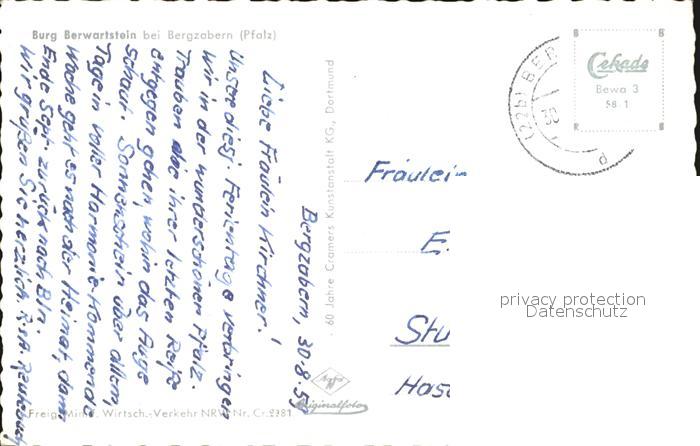 Burg Berwartstein bei Bergzabern (Pfalz)
Bergzabern, 30.8.59
Liebe Fräulein Kirchner!
Unsere diesj. Ferientage verbringen
wir in der wunderschönen Pfalz.
Trauben die ihrer letzten Reife
entgegen gehen, wohin das Auge
schaut. Sonnenschein über allem,
Tage in voller Harmonie. Kommende
Woche geht es nach der Heimat, dann
Ende Sept. zurück nach Bln.
Wir grüßen Sie herzlich
60 Jahre Cramers Kunstanstalt KG., Dortmund
(22b) BER
30
d
B B
Cekade
Bewa 3
58 1
R B
Fräulein
E.
Stu
Has
privacy protection
Datenschutz
Agfa
Originalfoto
Freig. Min. f. Wirtsch.-Verkehr NRW Nr. Cr. 2981